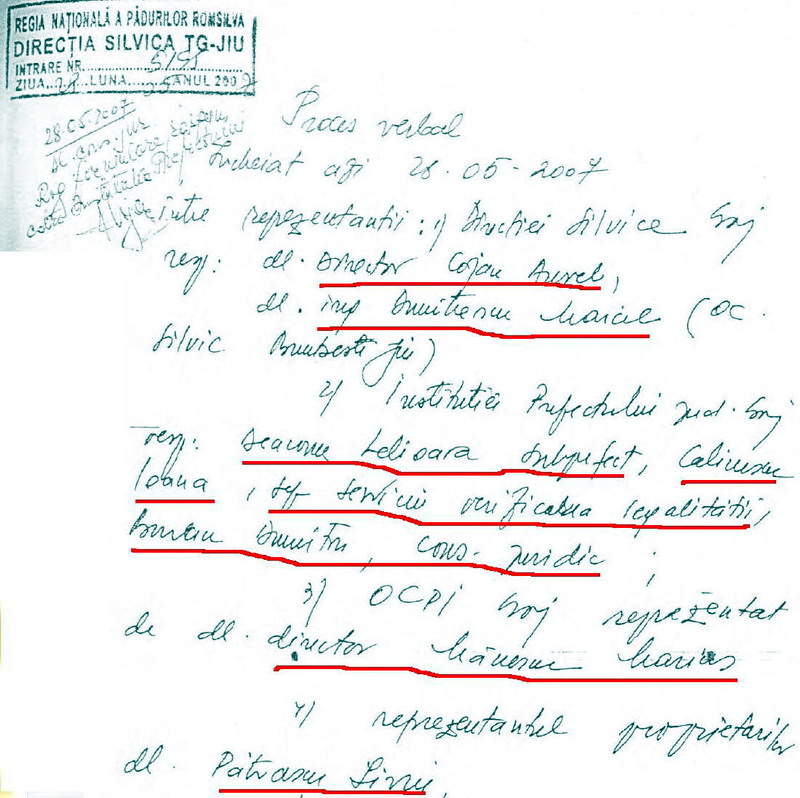 REGIA NAȚIONALĂ A PĂDURILOR ROMSILVA
DIRECȚIA SILVICA TG-JIU
INTRARE NR. 5195
ZIUA..28..LUNA..05..ANUL 2007
28.05.2007
dl cons. jur.
Rog formulare răspuns
către Instituția Prefectului
Proces verbal
Încheiat azi 28-05-2007
între reprezentantii: 1) Direcției Silvice Gorj
rep: dl. Director Cojan Aurel,
dl. ing Dumitrescu Maricel (OC.
Silvic Bumbesti Jiu)
2) Institutiei Prefectului jud. Gorj
rep: Deaconu Lelioara subprefect, Calinescu
Ioana, sef serviciu verificarea legalitătii,
Dumitru, cons. juridic;
3) OCPI Gorj reprezentat
de dl. director Mănescu Marius
4) reprezentantul proprietarilor
dl. Pătrascu Liviu,